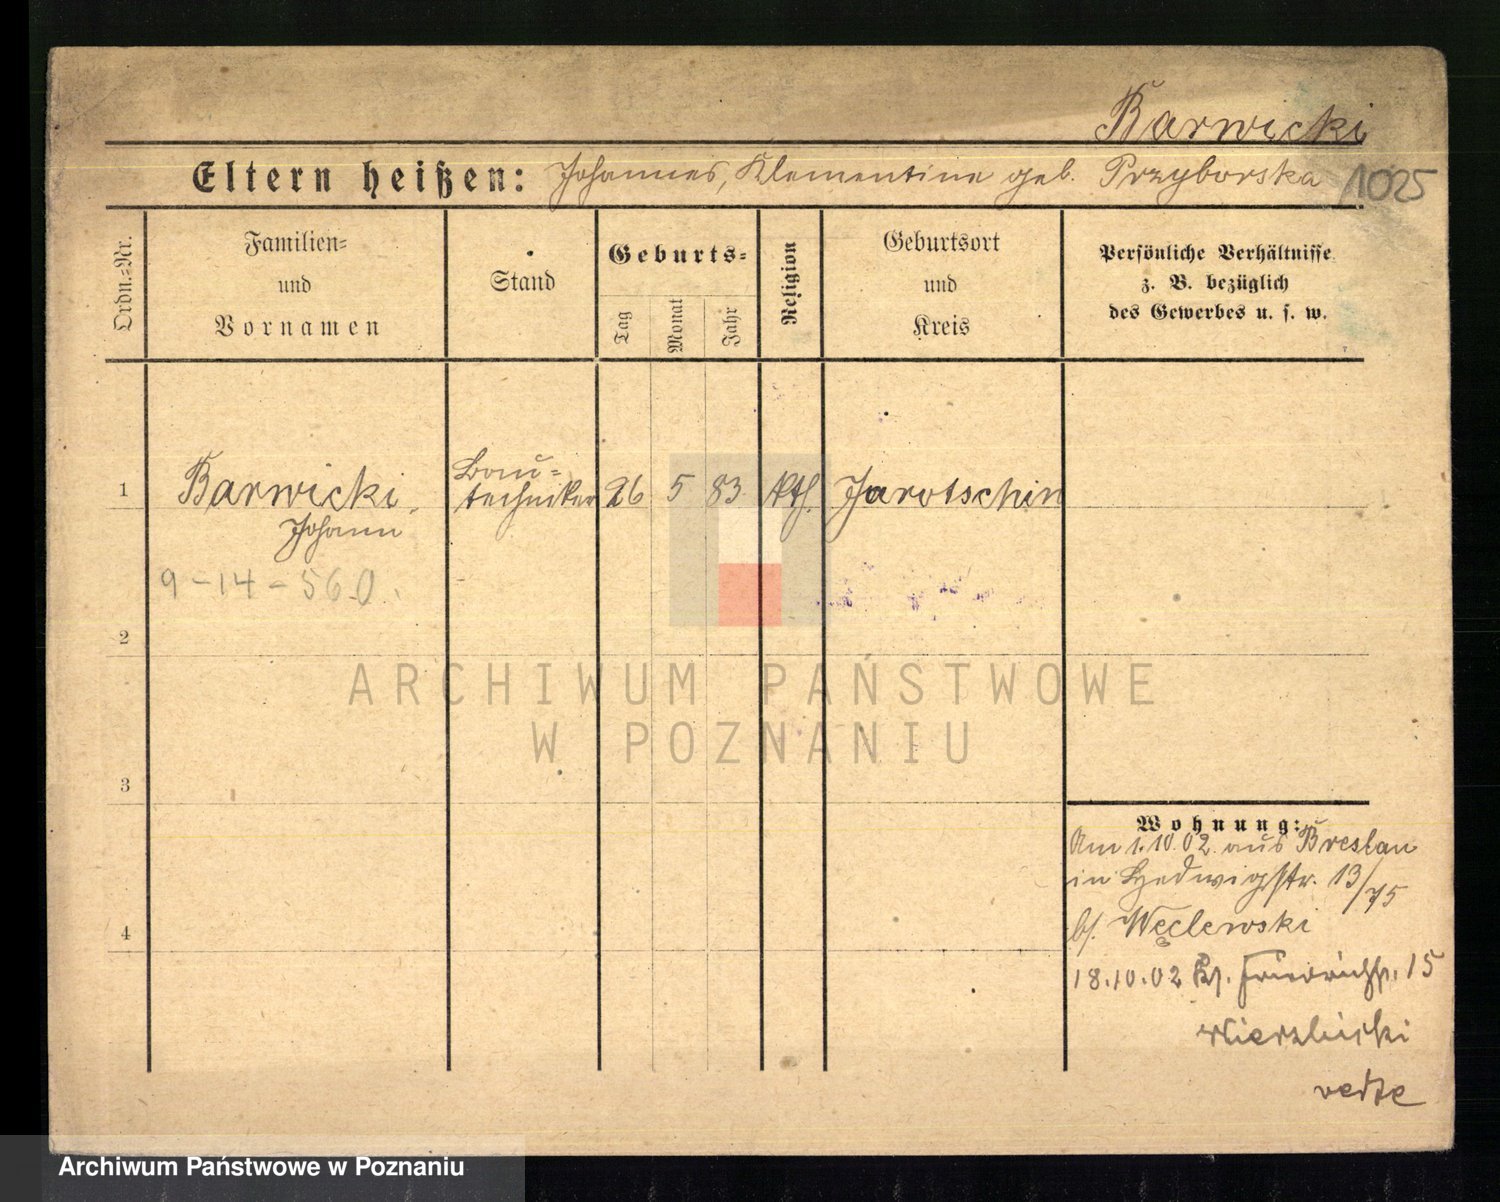 Barwicki
Eltern heißen: Johannes, Klementine geb. Przyborska 1025
Ordn.-Nr.
Familien-
und
Vornamen
Stand
Geburts-
Tag
Monat
Jahr
Religion
Geburtsort
und
Kreis
Persönliche Verhältnisse
z. B. bezüglich
des Gewerbes u. s. w.
1
Barwicki,
Johann
Bau-
techniker
26 5 83 kth. Jarotschin
9-14-560.
2
3
4
Wohnung:
Am 1.10.02 aus Breslau
in Hedwigstr. 13/75
b/. Węclewski
18.10.02 Friedrichstr. 15
Wierzbicki
ARCHIWUM PAŃSTWOWE
W POZNANIU
Archiwum Państwowe w Poznaniu